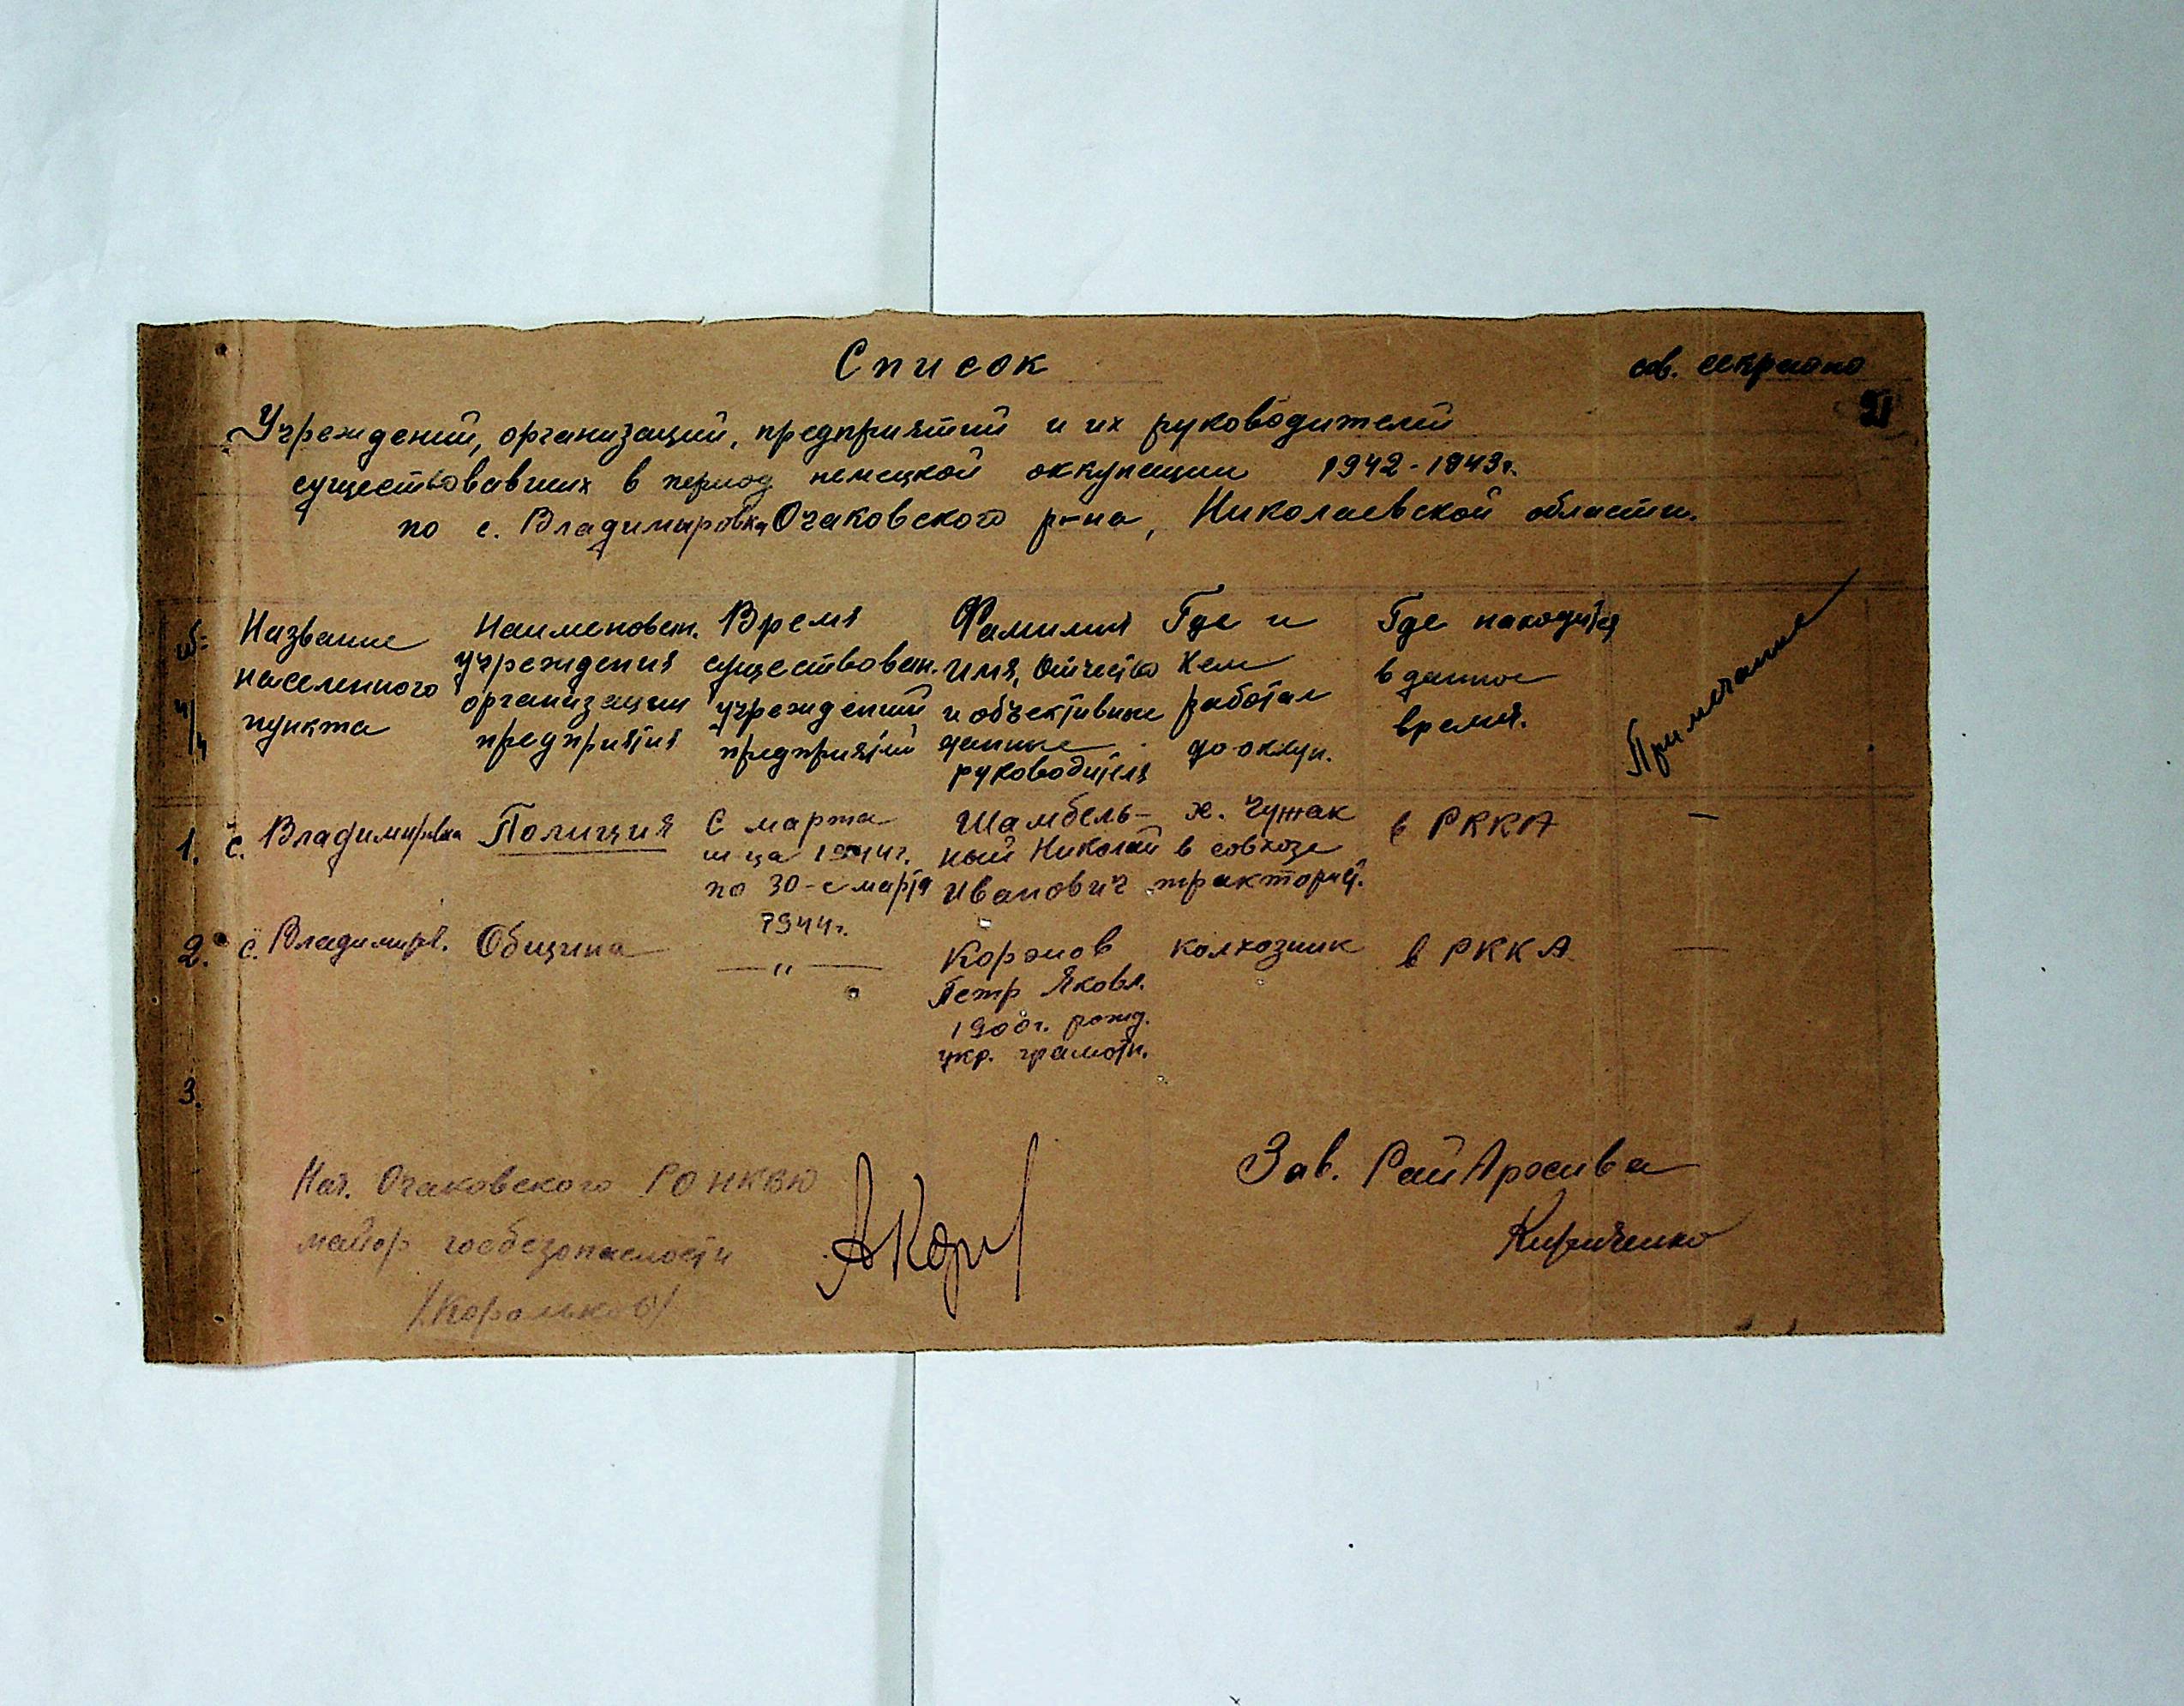 Список
сов. секретно
21
Учреждений, организаций, предприятий и их руководителей
существовавших в период немецкой оккупации 1942-1943г.
по с. Владимировка Очаковского р-на, Николаевской области.
Название населенного пункта
Наименован. учреждения организации предприятия
Время существован. учреждений предприятий
Фамилия имя, отчество и объективные данные руководителя
Где и кем работал до оккуп.
Где находится в данное время.
Примечание
1. с. Владимировка Полиция С марта м-ца 1944г. по 30-е марта 1944г. Шамбель-ный Николай Иванович х. Чужак в совхозе тракторис. в РККА —
2. с. Владимиров. Община —„— Петр Яковл. 1900г. рожд. укр. грамотн. колхозник в РККА —
3.
Нач. Очаковского РО НКВД
майор госбезопасности
/Корольков/
Зав. РайАрхива
Кириченко